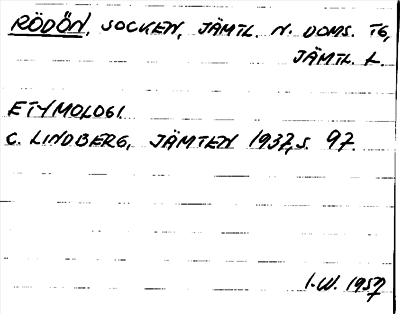 RÖDÖN, SOCKEN, JÄMTL. N. DOMS. TG,
JÄMTL. L.
ETYMOLOGI.
C. LINDBERG, JÄMTEN 1937, S. 97.
I.W. 1957